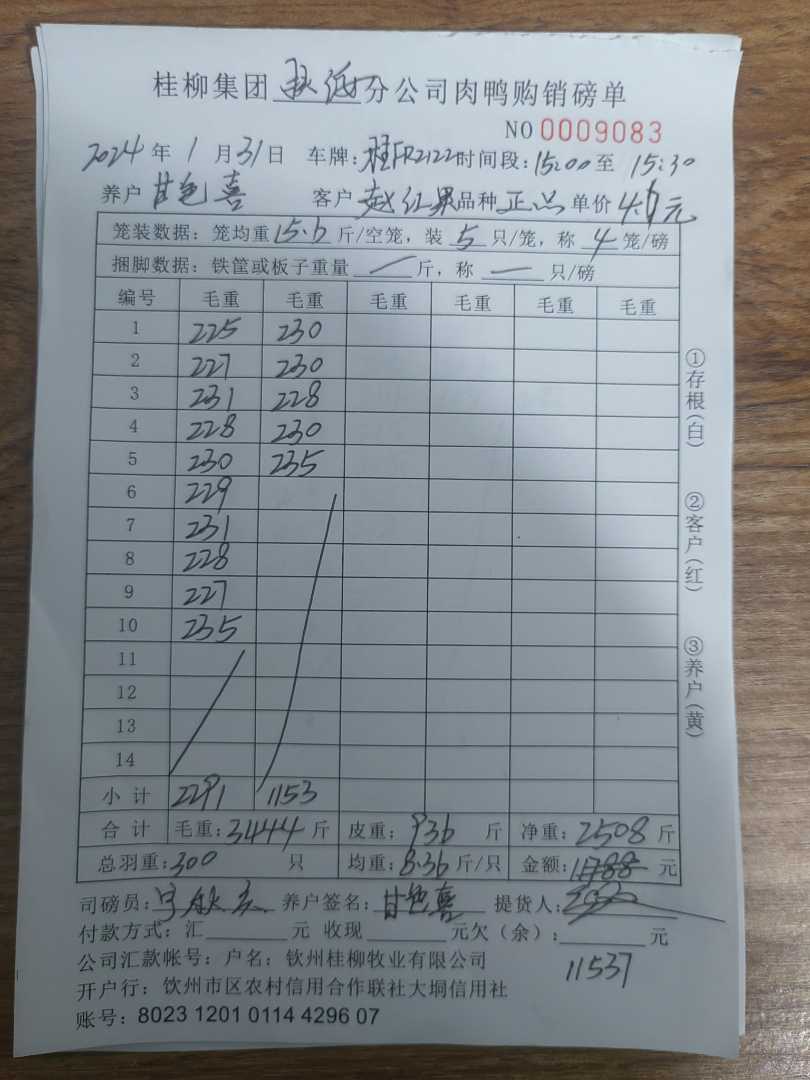 桂柳集团 分公司肉鸭购销磅单
NO 0009083
2024 年 1 月 31 日 车牌:桂FR2122 时间段:15:00 至 15:30
养户 甘色喜 客户 赵红果 品种 正品 单价 4.6元
笼装数据:笼均重 15.6 斤/空笼,装 5 只/笼,称 4 笼/磅
捆脚数据:铁筐或板子重量 / 斤,称 一 只/磅
编号 毛重 毛重 毛重 毛重 毛重 毛重
1 225 230
2 227 230
3 231 228
4 228 230
5 230 235
6 229
7 231
8 228
9 227
10 235
11
12
13
14
小计 2291 1153
合计 毛重:3444 斤 皮重:936 斤 净重:2508 斤
总羽重:300 只 均重:8.36 斤/只 金额: 元
司磅员: 养户签名:甘色喜 提货人:
付款方式:汇 元 收现 元欠(余): 元
11537
公司汇款帐号:户名:钦州桂柳牧业有限公司
开户行:钦州市区农村信用合作联社大垌信用社
账号:8023 1201 0114 4296 07
①存根(白)
②客户(红)
③养户(黄)